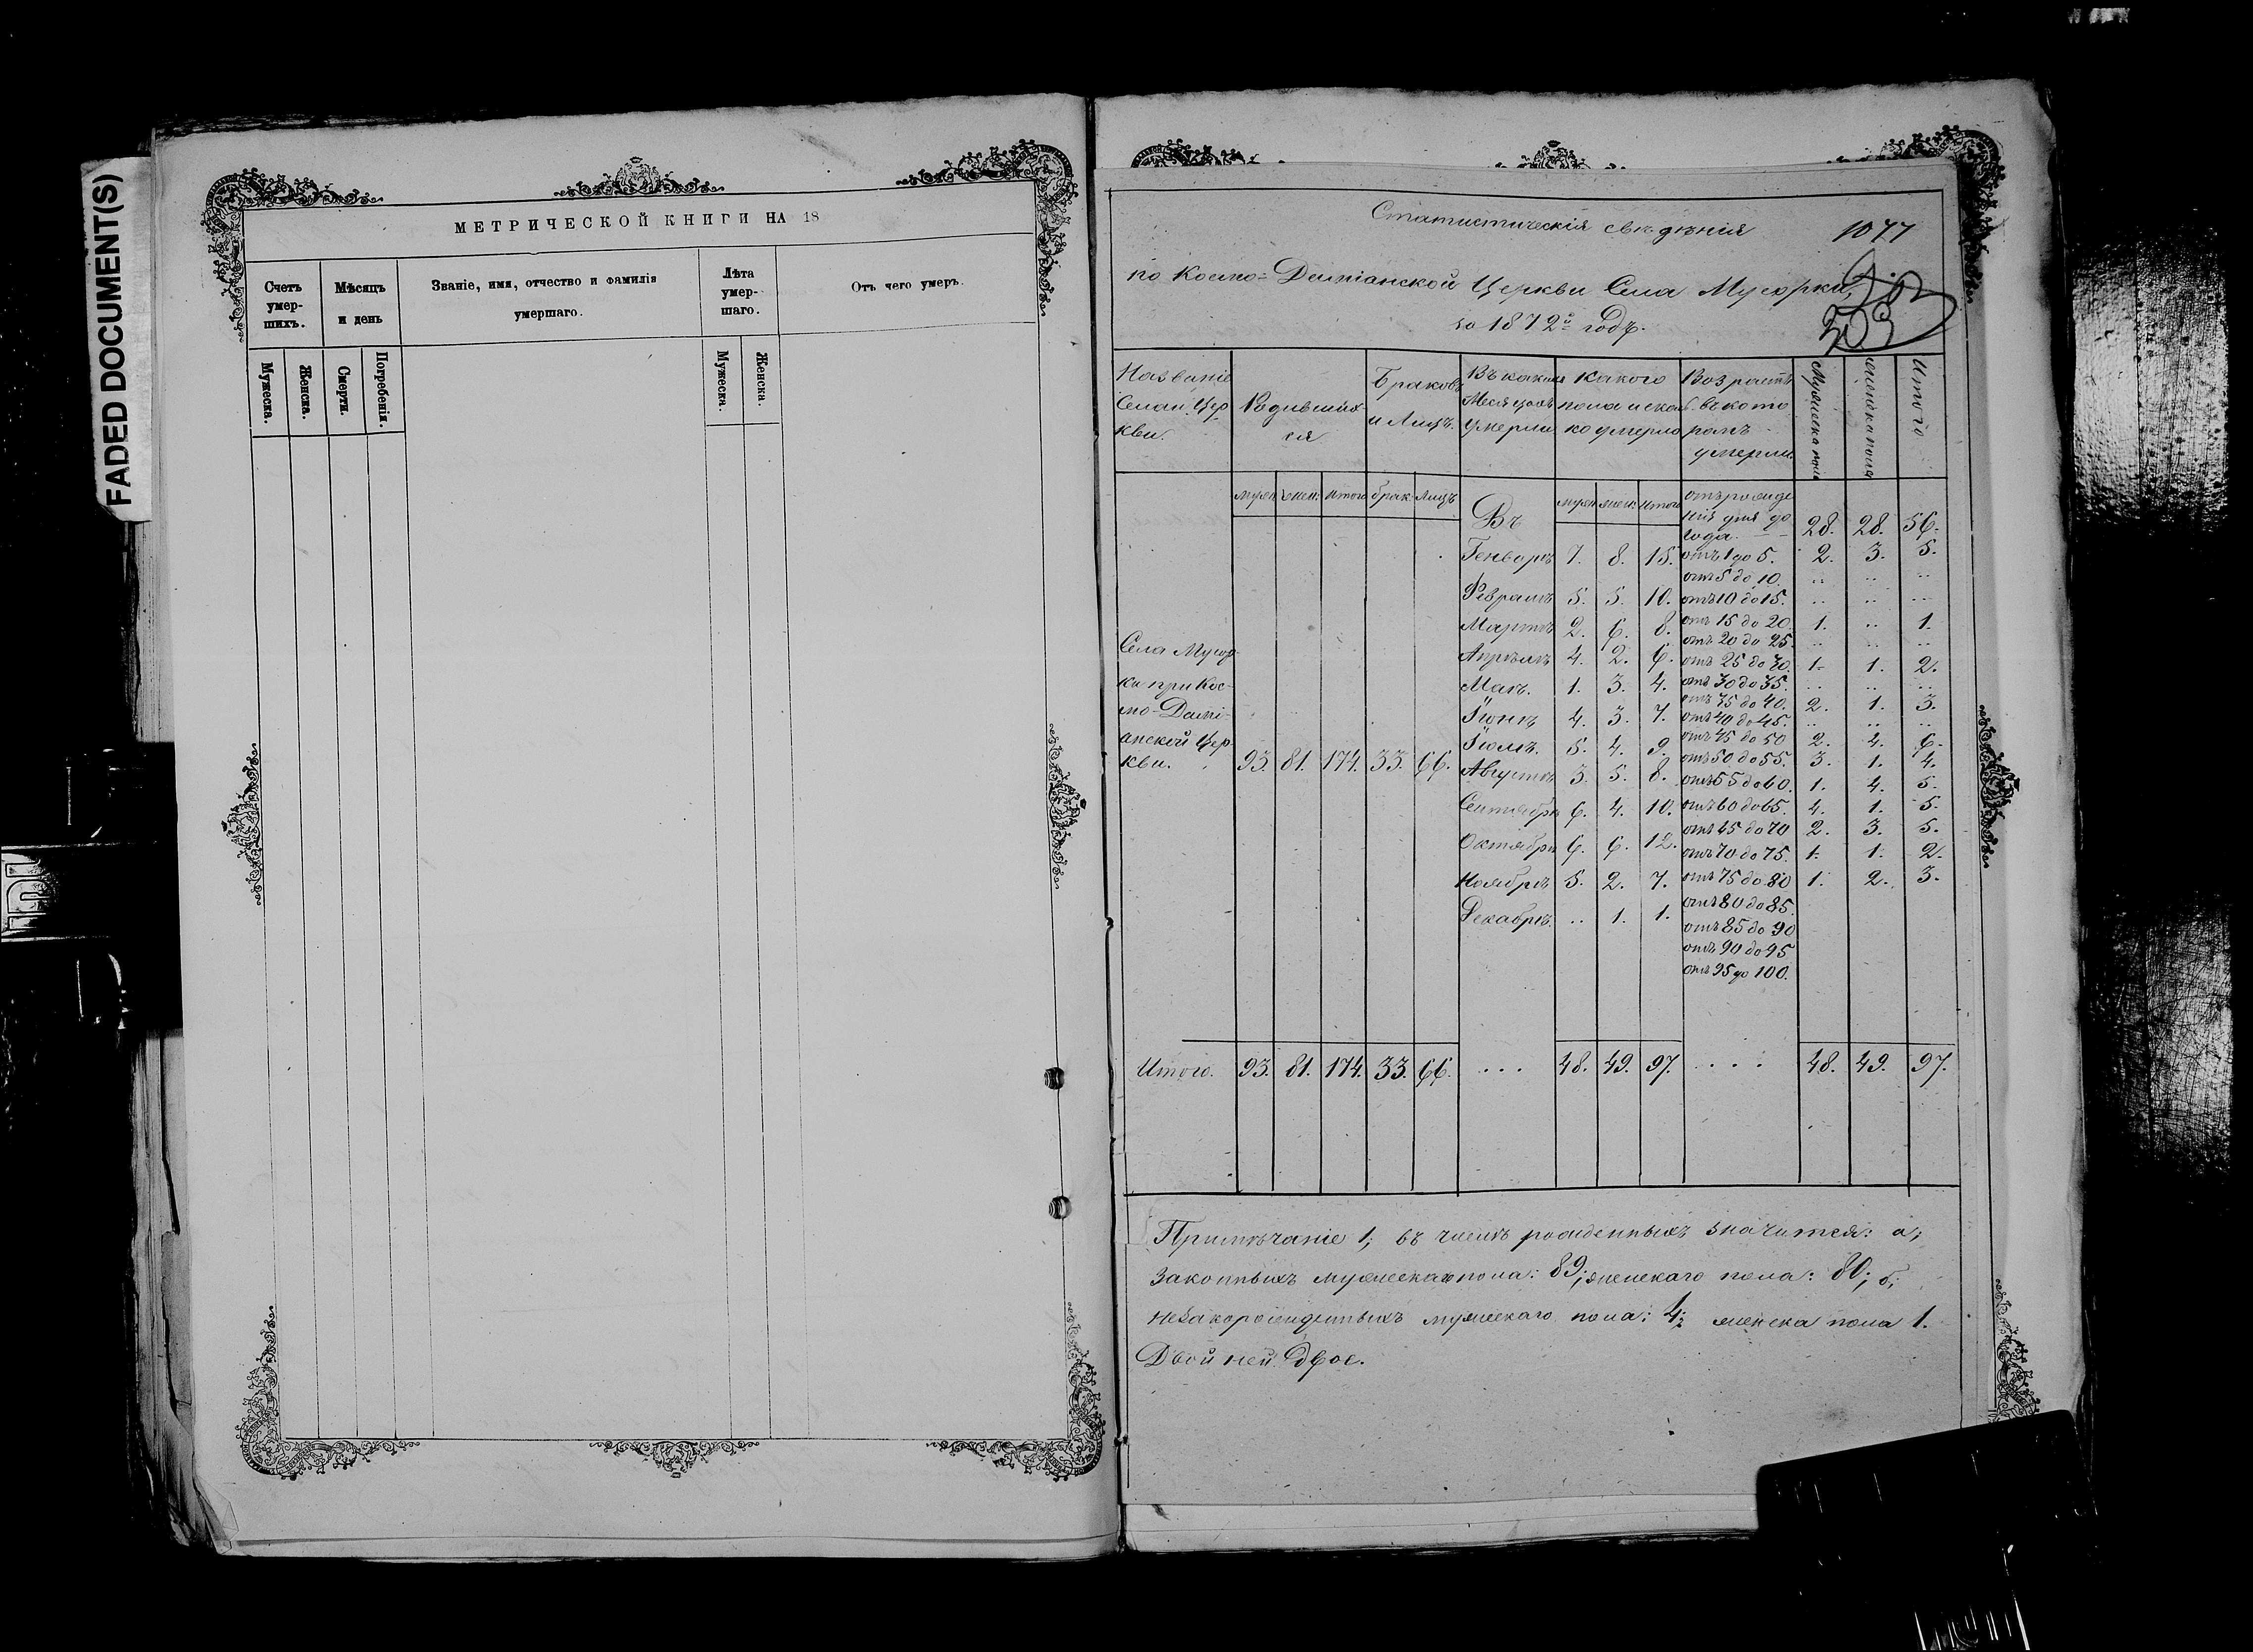 FADED DOCUMENT(S)
МЕТРИЧЕСКОЙ КНИГИ НА 18
Счетъ умер- шихъ.
Мѣсяцъ и день
Званіе, имя, отчество и фамилія умершаго.
Лѣта умер- шаго.
Отъ чего умеръ.
Мужеска.
Женска.
Смерти.
Погребенія.
Мужеска.
Женска.
Статистическія свѣдѣнія
1077
по Космо-Даміанской Церкви Села Мусорки,
за 1872й годъ.
Названіе Села и Цер кви.
Родивших ся
Браковъ и Лицъ.
Въ какихъ Месяцахъ умерли
какого пола и сколь ко умерло
Возрастъ въ кото ромъ умерли.
Мужеска пола
женска пола
Итого
муж. жен: итого брак: Лицъ
Въ
муж. жен: итого
отъ рожде нія дня до года. 28. 28. 56.
Генварѣ 7. 8. 15. отъ 1 до 5. 2. 3. 5.
отъ 5 до 10. .. .. ..
Февралѣ 5. 5. 10. отъ 10 до 15. .. .. ..
Мартѣ 2. 6. 8. отъ 15 до 20. 1. .. 1.
отъ 20 до 25. .. .. ..
Апрѣлѣ 4. 2. 6. отъ 25 до 30. 1. 1. 2.
Маѣ. 1. 3. 4. отъ 30 до 35. .. .. ..
отъ 35 до 40. 2. 1. 3.
Іюнѣ 4. 3. 7. отъ 40 до 45. .. .. ..
Іюлѣ. 5. 4. 9. отъ 45 до 50 2. 4. 6.
отъ 50 до 55. 3. 1. 4.
Августѣ 3. 5. 8. отъ 55 до 60. 1. 4. 5.
Сентябрѣ 6. 4. 10. отъ 60 до 65. 4. 1. 5.
отъ 65 до 70 2. 3. 5.
Октябрѣ 6. 6. 12. отъ 70 до 75. 1. 1. 2.
Ноябрѣ 5. 2. 7. отъ 75 до 80 1. 2. 3.
отъ 80 до 85.
Декабрѣ. .. 1. 1.
отъ 85 до 90
отъ 90 до 95
отъ 95 до 100.
Села Мусор
ки при Кос-
мо-Дамі-
анской Цер
кви. 93. 81. 174. 33. 66.
Итого. 93. 81. 174. 33. 66. . . . 48. 49. 97. . . . . 48. 49. 97.
Примѣчаніе 1; въ числѣ рожденныхъ значится: а;
законныхъ мужескаго пола: 89; женскаго пола: 80; б;
незакорожденныхъ мужескаго пола: 4; женска пола 1.
Двойней двое.